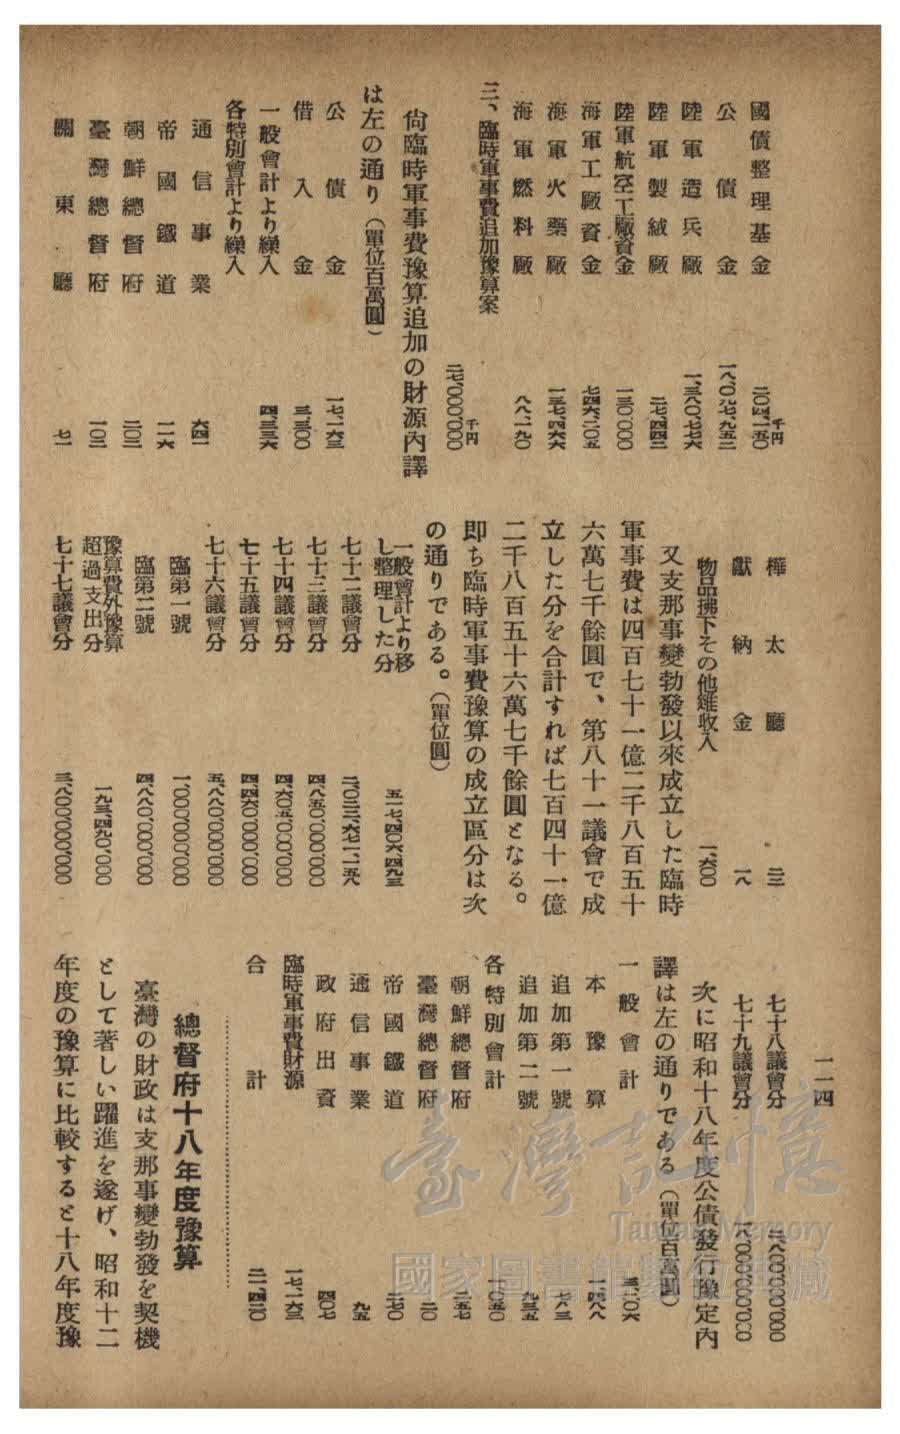 一一四
國債整理基金 二〇四、一五〇千円
公債金 一八、〇九七、九五二
陸軍造兵廠 一、三八〇、七七六
陸軍製絨廠 二七、四四二
陸軍航空工廠資金 一三〇、〇〇〇
海軍工廠資金 七四六、二〇五
海軍火藥廠 一三七、四六六
海軍燃料廠 八八、一九〇
三、臨時軍事費追加豫算案
二七、〇〇〇、〇〇〇千円
尙臨時軍事費豫算追加の財源內譯
は左の通り（單位百萬圓）
公債金 一七、一六三
借入金 三、三〇〇
一般會計より繰入 四、三三六
各特別會計より繰入
通信事業 六四一
帝國鐵道 一一六
朝鮮總督府 二〇二
臺灣總督府 一〇二
關東廳 七一
樺太廳 三
獻納金 一八
物品拂下その他雜收入 一、六〇〇
又支那事變勃發以來成立した臨時
軍事費は四百七十一億二千八百五十
六萬七千餘圓で、第八十一議會で成
立した分を合計すれば七百四十一億
二千八百五十六萬七千餘圓となる。
即ち臨時軍事費豫算の成立區分は次
の通りである。（單位圓）
一般會計より移
し整理した分 五一七、四〇六、四九三
七十二議會分 二、〇三三、六七一、一五八
七十三議會分 四、八五〇、〇〇〇、〇〇〇
七十四議會分 四、六〇五、〇〇〇、〇〇〇
七十五議會分 四、四六〇、〇〇〇、〇〇〇
七十六議會分 五、八八〇、〇〇〇、〇〇〇
臨第一號 一、〇〇〇、〇〇〇、〇〇〇
臨第二號 四、八八〇、〇〇〇、〇〇〇
豫算費外豫算
超過支出分 一九三、四九〇、〇〇〇
七十七議會分 三、八〇〇、〇〇〇、〇〇〇
七十八議會分 二、八〇〇、〇〇〇、〇〇〇
七十九議會分 一八、〇〇〇、〇〇〇、〇〇〇
次に昭和十八年度公債發行豫定內
譯は左の通りである（單位百萬圓）
一般會計 三、二〇六
本豫算 一、四八八
追加第一號 七八三
追加第二號 九三五
各特別會計 一、〇五〇
朝鮮總督府 二五七
臺灣總督府 二〇
帝國鐵道 二七〇
通信事業 九五
政府出資 四〇七
臨時軍事費財源 一七、一六三
合計 二一、四二〇
總督府十八年度豫算
臺灣の財政は支那事變勃發を契機
として著しい躍進を遂げ、昭和十二
年度の豫算に比較すると十八年度豫
臺灣記憶
Taiwan Memory
國家圖書館數位典藏